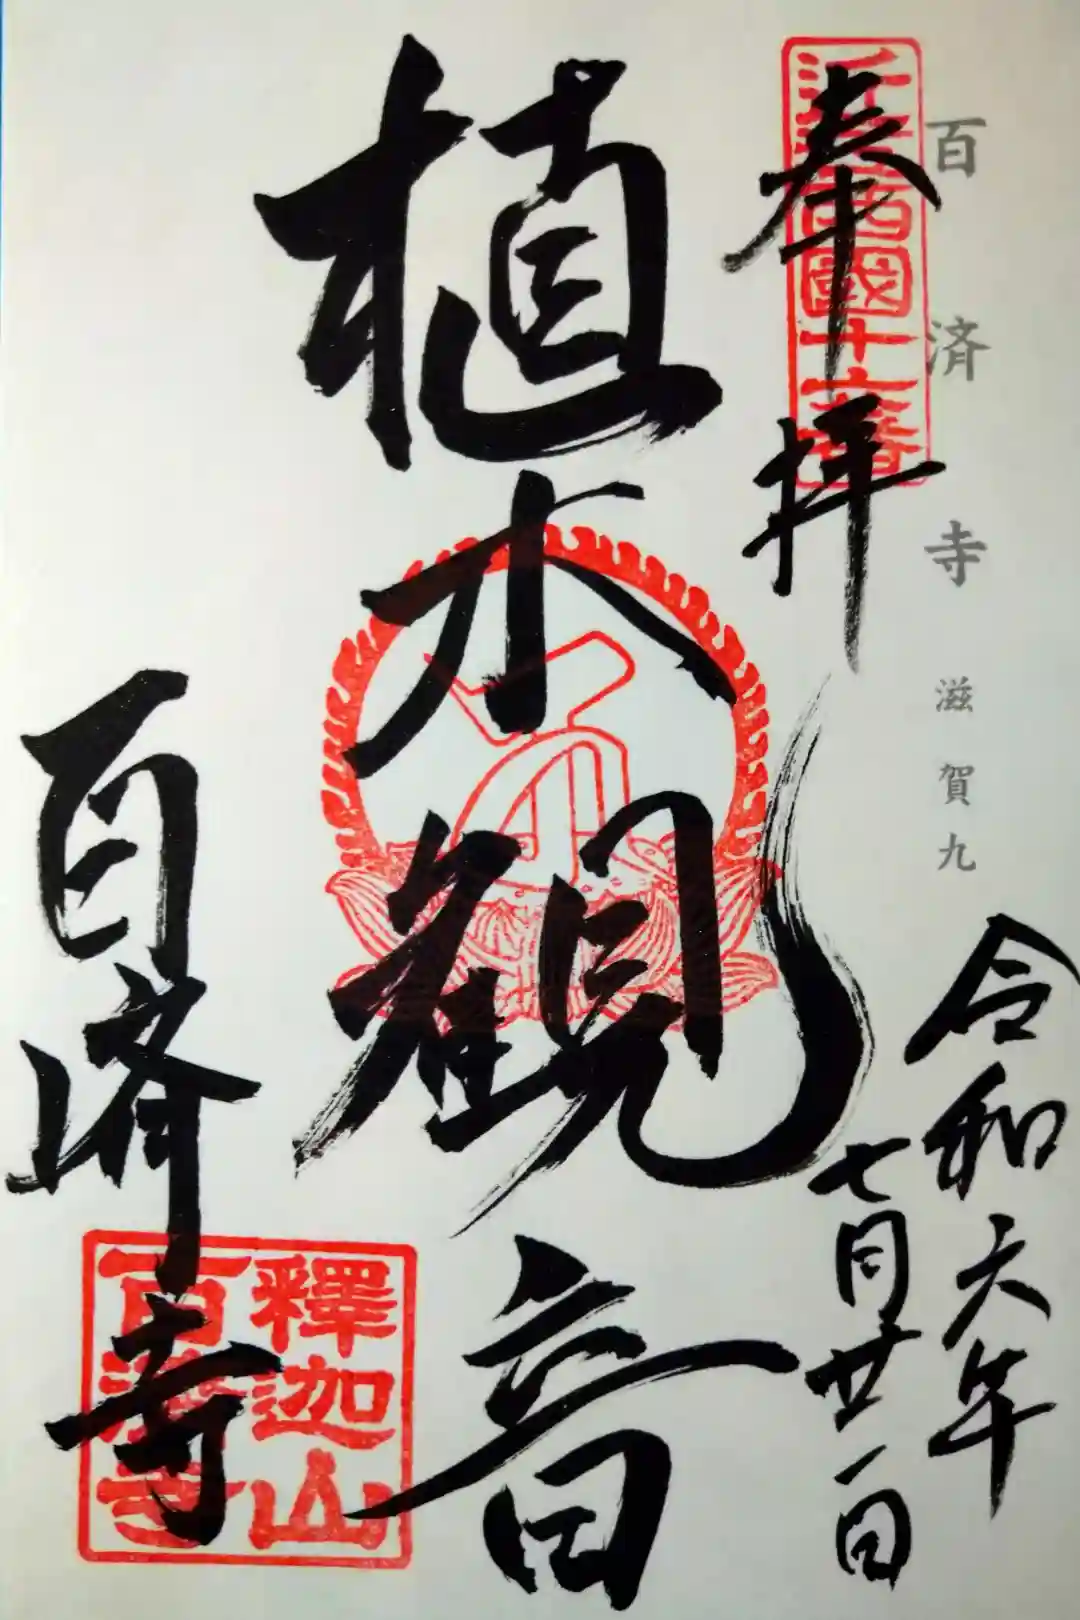 百済寺 滋賀九
近江西國十六番
奉拝
令和六年
七月廿一日
植木観音
百済寺
釋迦山
百濟寺